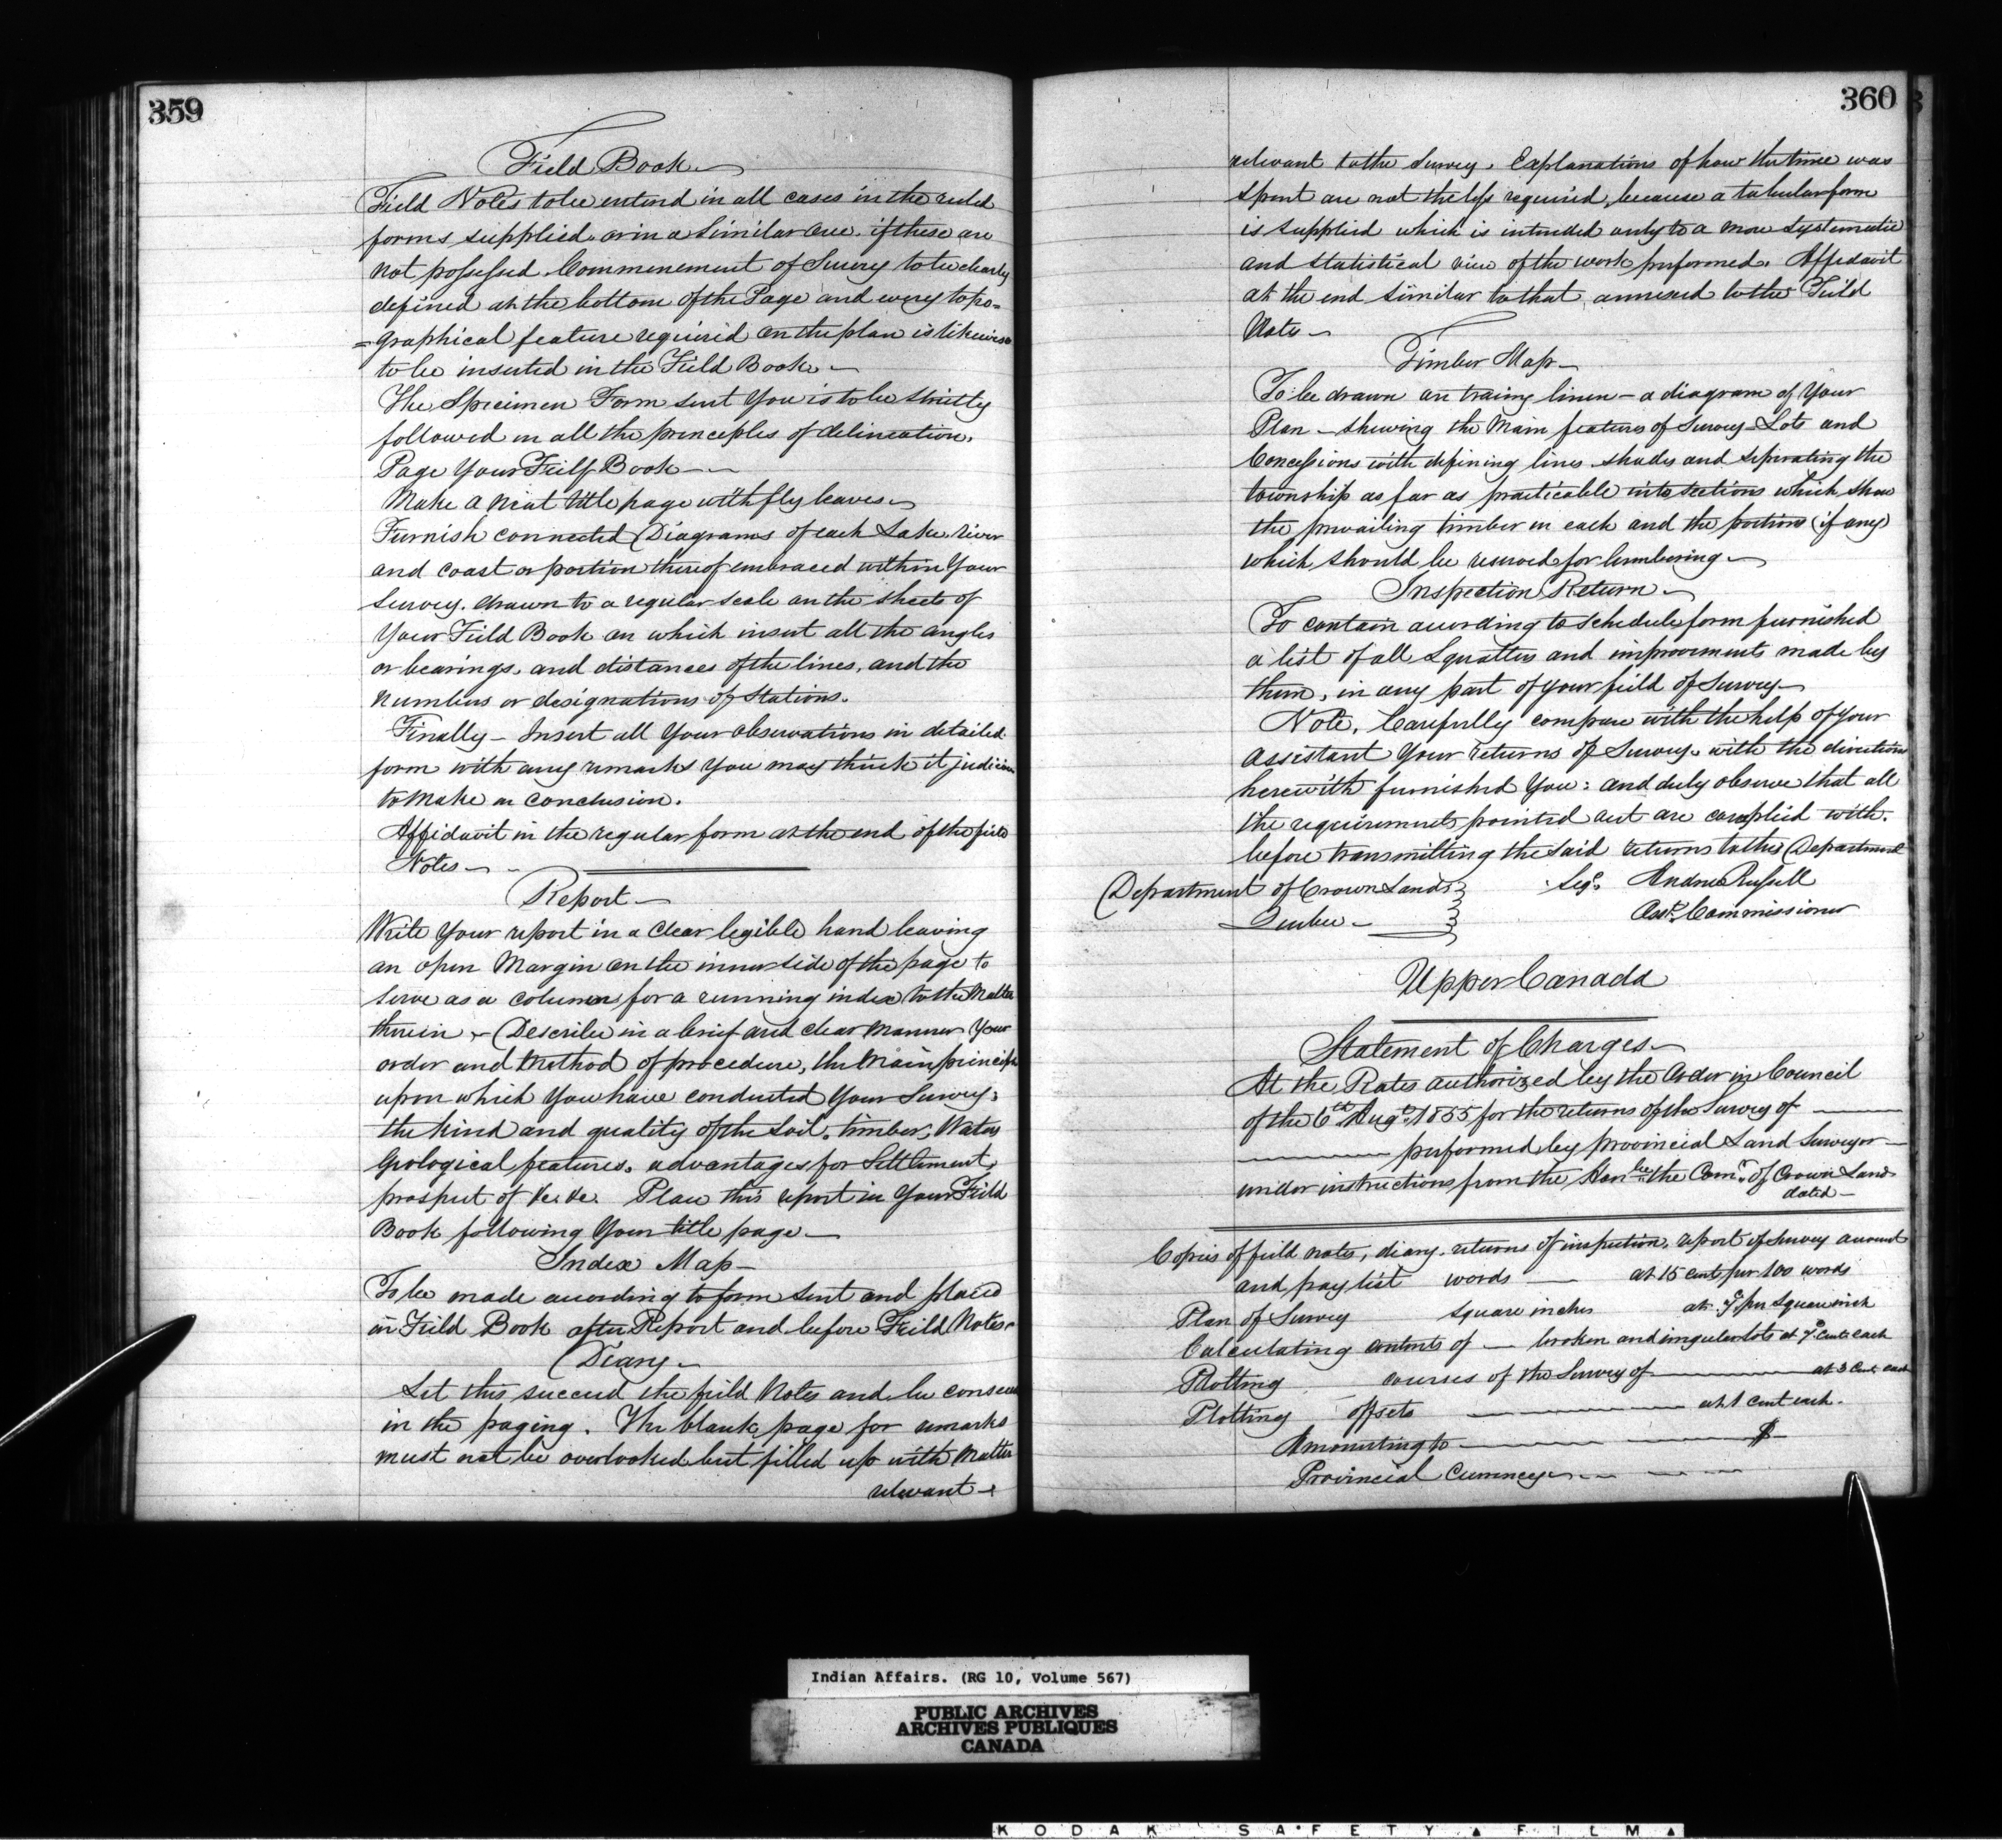 359
Field Book
Field Notes to be entered in all cases in the ruled
forms supplied or in a similar one if these are
not possessed. Commencement of Survey to be clearly
defined at the bottom of the Page and every topo=
=graphical feature required on the plan is likewise
to be inserted in the Field Book.
The Specimen Form sent You is to be strictly
followed in all the principles of delineation.
Page Your Feild Book
Make a neat title page with fly leaves
Furnish connected Diagrams of each Lake, river
and coast or portion thereof embraced within Your
Survey. drawn to a regular scale on the sheets of
Your Field Book on which insert all the angles
or bearings, and distances of the lines, and the
numbers or designations of Stations.
Finally - Insert all Your observations in detailed
form with any remarks You may think it judicious
to make in conclusion.
Affidavit in the regular form at the end of the field
Notes
Report
Write Your report in a clear legible hand leaving
an open Margin on the inner side of the page to
serve as a column for a running index to the Matter
therein. Describe in a brief and clear manner Your
order and method of procedure, the Main principle
upon which You have conducted Your Survey,
the kind and quality of the Soil, timber, Water,
Geological features, advantages for Settlement,
prospect of &c. &c. Place this report in Your Feild
Book following Your title page
Index Map
To be made according to form sent and placed
in Field Book after Report and before Feild Notes.
Diary
Let this succeed the field Notes and be consecu
in the paging. The blank page for remarks
must not be overlooked but filled up with Matter
relevant
360
relevant to the Survey. Explanations of how the time was
spent are not the less required, because a tabular form
is supplied which is intended only to a more systematic
and statistical view of the work performed. Affidavit
at the end similar to that annexed to the Feild
Note
Timber Map
To be drawn on tracing linen - a diagram of Your
Plan - shewing the Main features of Survey - Lots and
Concessions with defining lines shades and seperating the
township as far as practicable into sections which show
the prevailing timber in each and the portions (if any)
which should be reserved for lumbering
Inspection Return
To contain according to schedule form furnished
a list of all Squatters and improvements made by
them, in any part of your field of Survey
Note, Carefully compare with the help of Your
Assistant Your returns of Survey with the directions
herewith furnished You: and duly observe that all
the requirements pointed out are complied with.
before transmitting the said returns to this Department
Department of Crown Lands Sigd. Andrew Russell
Quebec Asst. Commissioner
Upper Canada
Statement of Charges
At the Rates authorized by the Order in Council
of the 6th Augt. 1855 for the returns of the Survey of
performed by provincial Land Surveyor
under instructions from the Honble. the Comr. of Crown Lands
dated
Copies of field notes, diary, returns of inspection, report of Survey account
and pay list words at 15 cents per 100 words
Plan of Survey square inches at per square inch
Calculating contents of broken and irregular lots at cents each
Plotting courses of the Survey of at 3 cents each
Plotting offsets at 1 cent each.
Amounting to $
Provincial Currency
Indian Affairs. (RG 10, Volume 567)
PUBLIC ARCHIVES
ARCHIVES PUBLIQUES
CANADA
KODAK SAFETY FILM